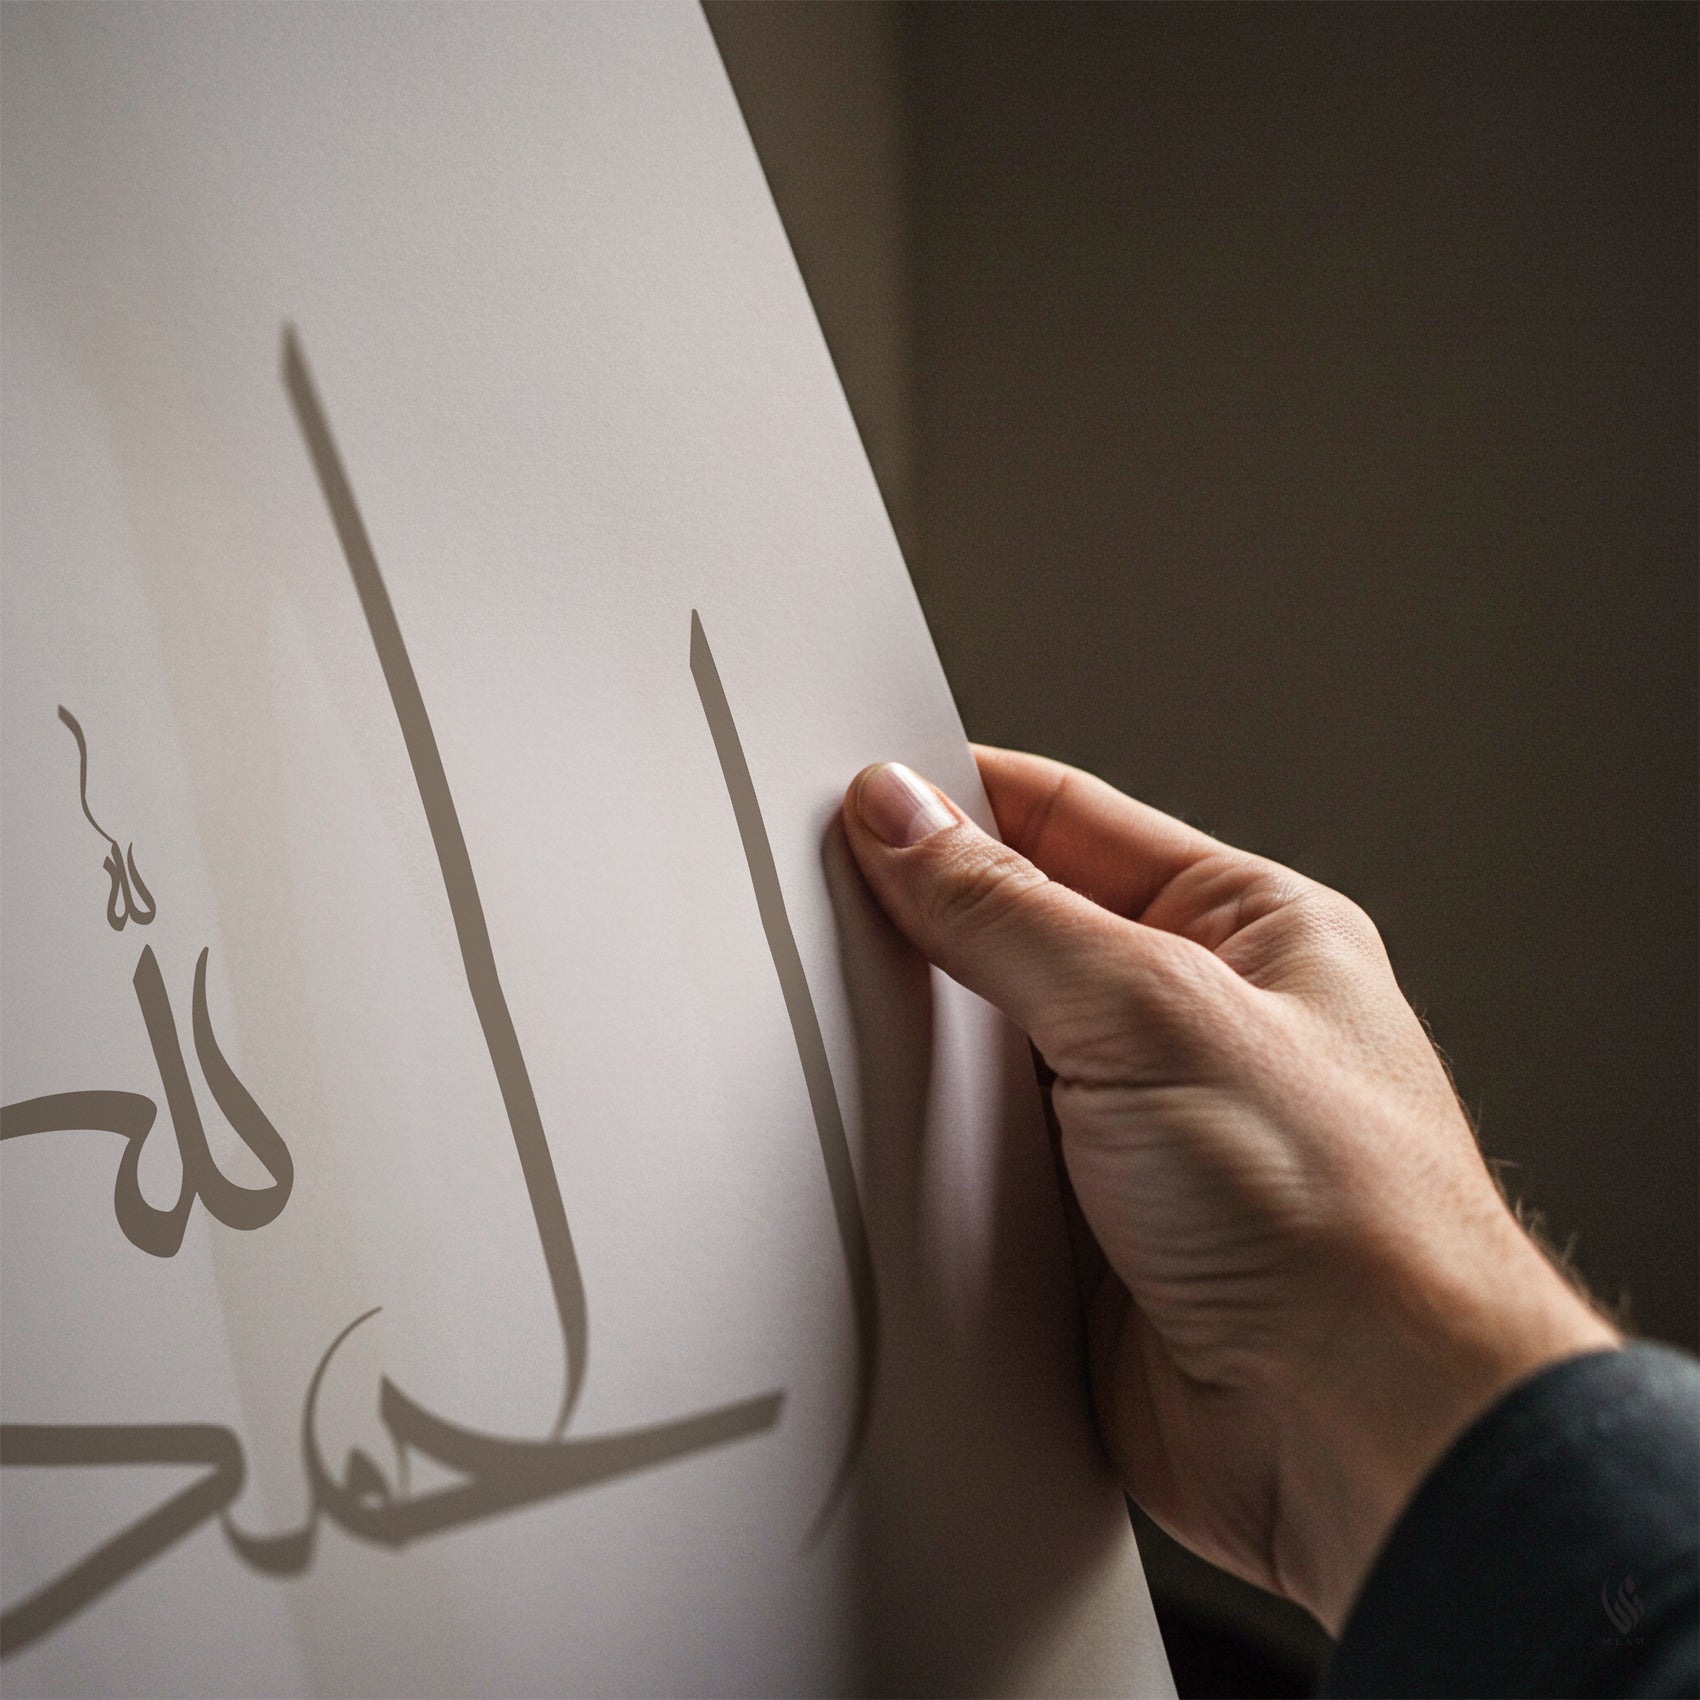 الحمد
لله
MEAM